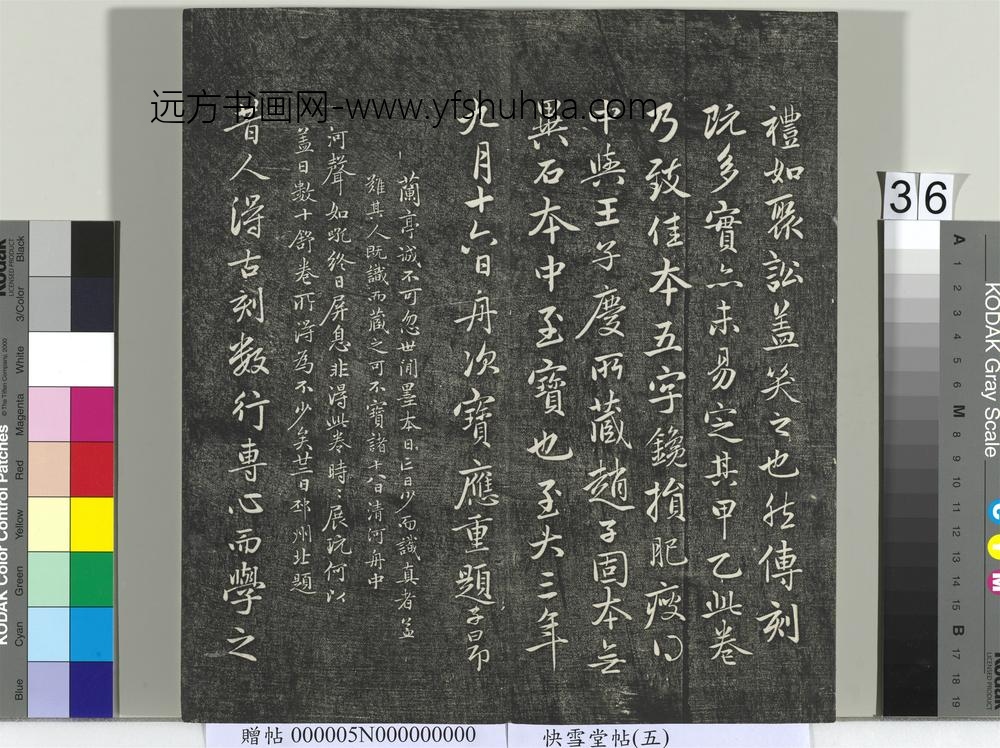 禮如聚訟盖笑之也然傳刻
既多實亦未易定其甲乙此卷
乃致佳本五字鑱損肥瘦得
中與王子慶所藏趙子固本無
異石本中至寶也至大三年
九月十六日舟次寶應重題子昂
蘭亭誠不可忽世間墨本日亡日少而識真者盖
難其人既識而藏之可不寶諸十八日清河舟中
河聲如吼終日屏息非得此卷時時展玩何以
盖日數十舒卷所得為不少矣廿二日邳州北題
昔人得古刻數行專心而學之
远方书画网-www.yfshuhua.com
36
KODAK Color Control Patches
LICENSED PRODUCT
© The Tiffen Company, 2000
Blue
Cyan
Green
Yellow
Red
Magenta
White
3/Color
Black
KODAK Gray Scale
C
Y
M
Kodak
LICENSED PRODUCT
A 1 2 3 4 5 6 M 8 9 10 11 12 13 14 15 B 17 18 19
贈帖 000005N000000000
快雪堂帖(五)